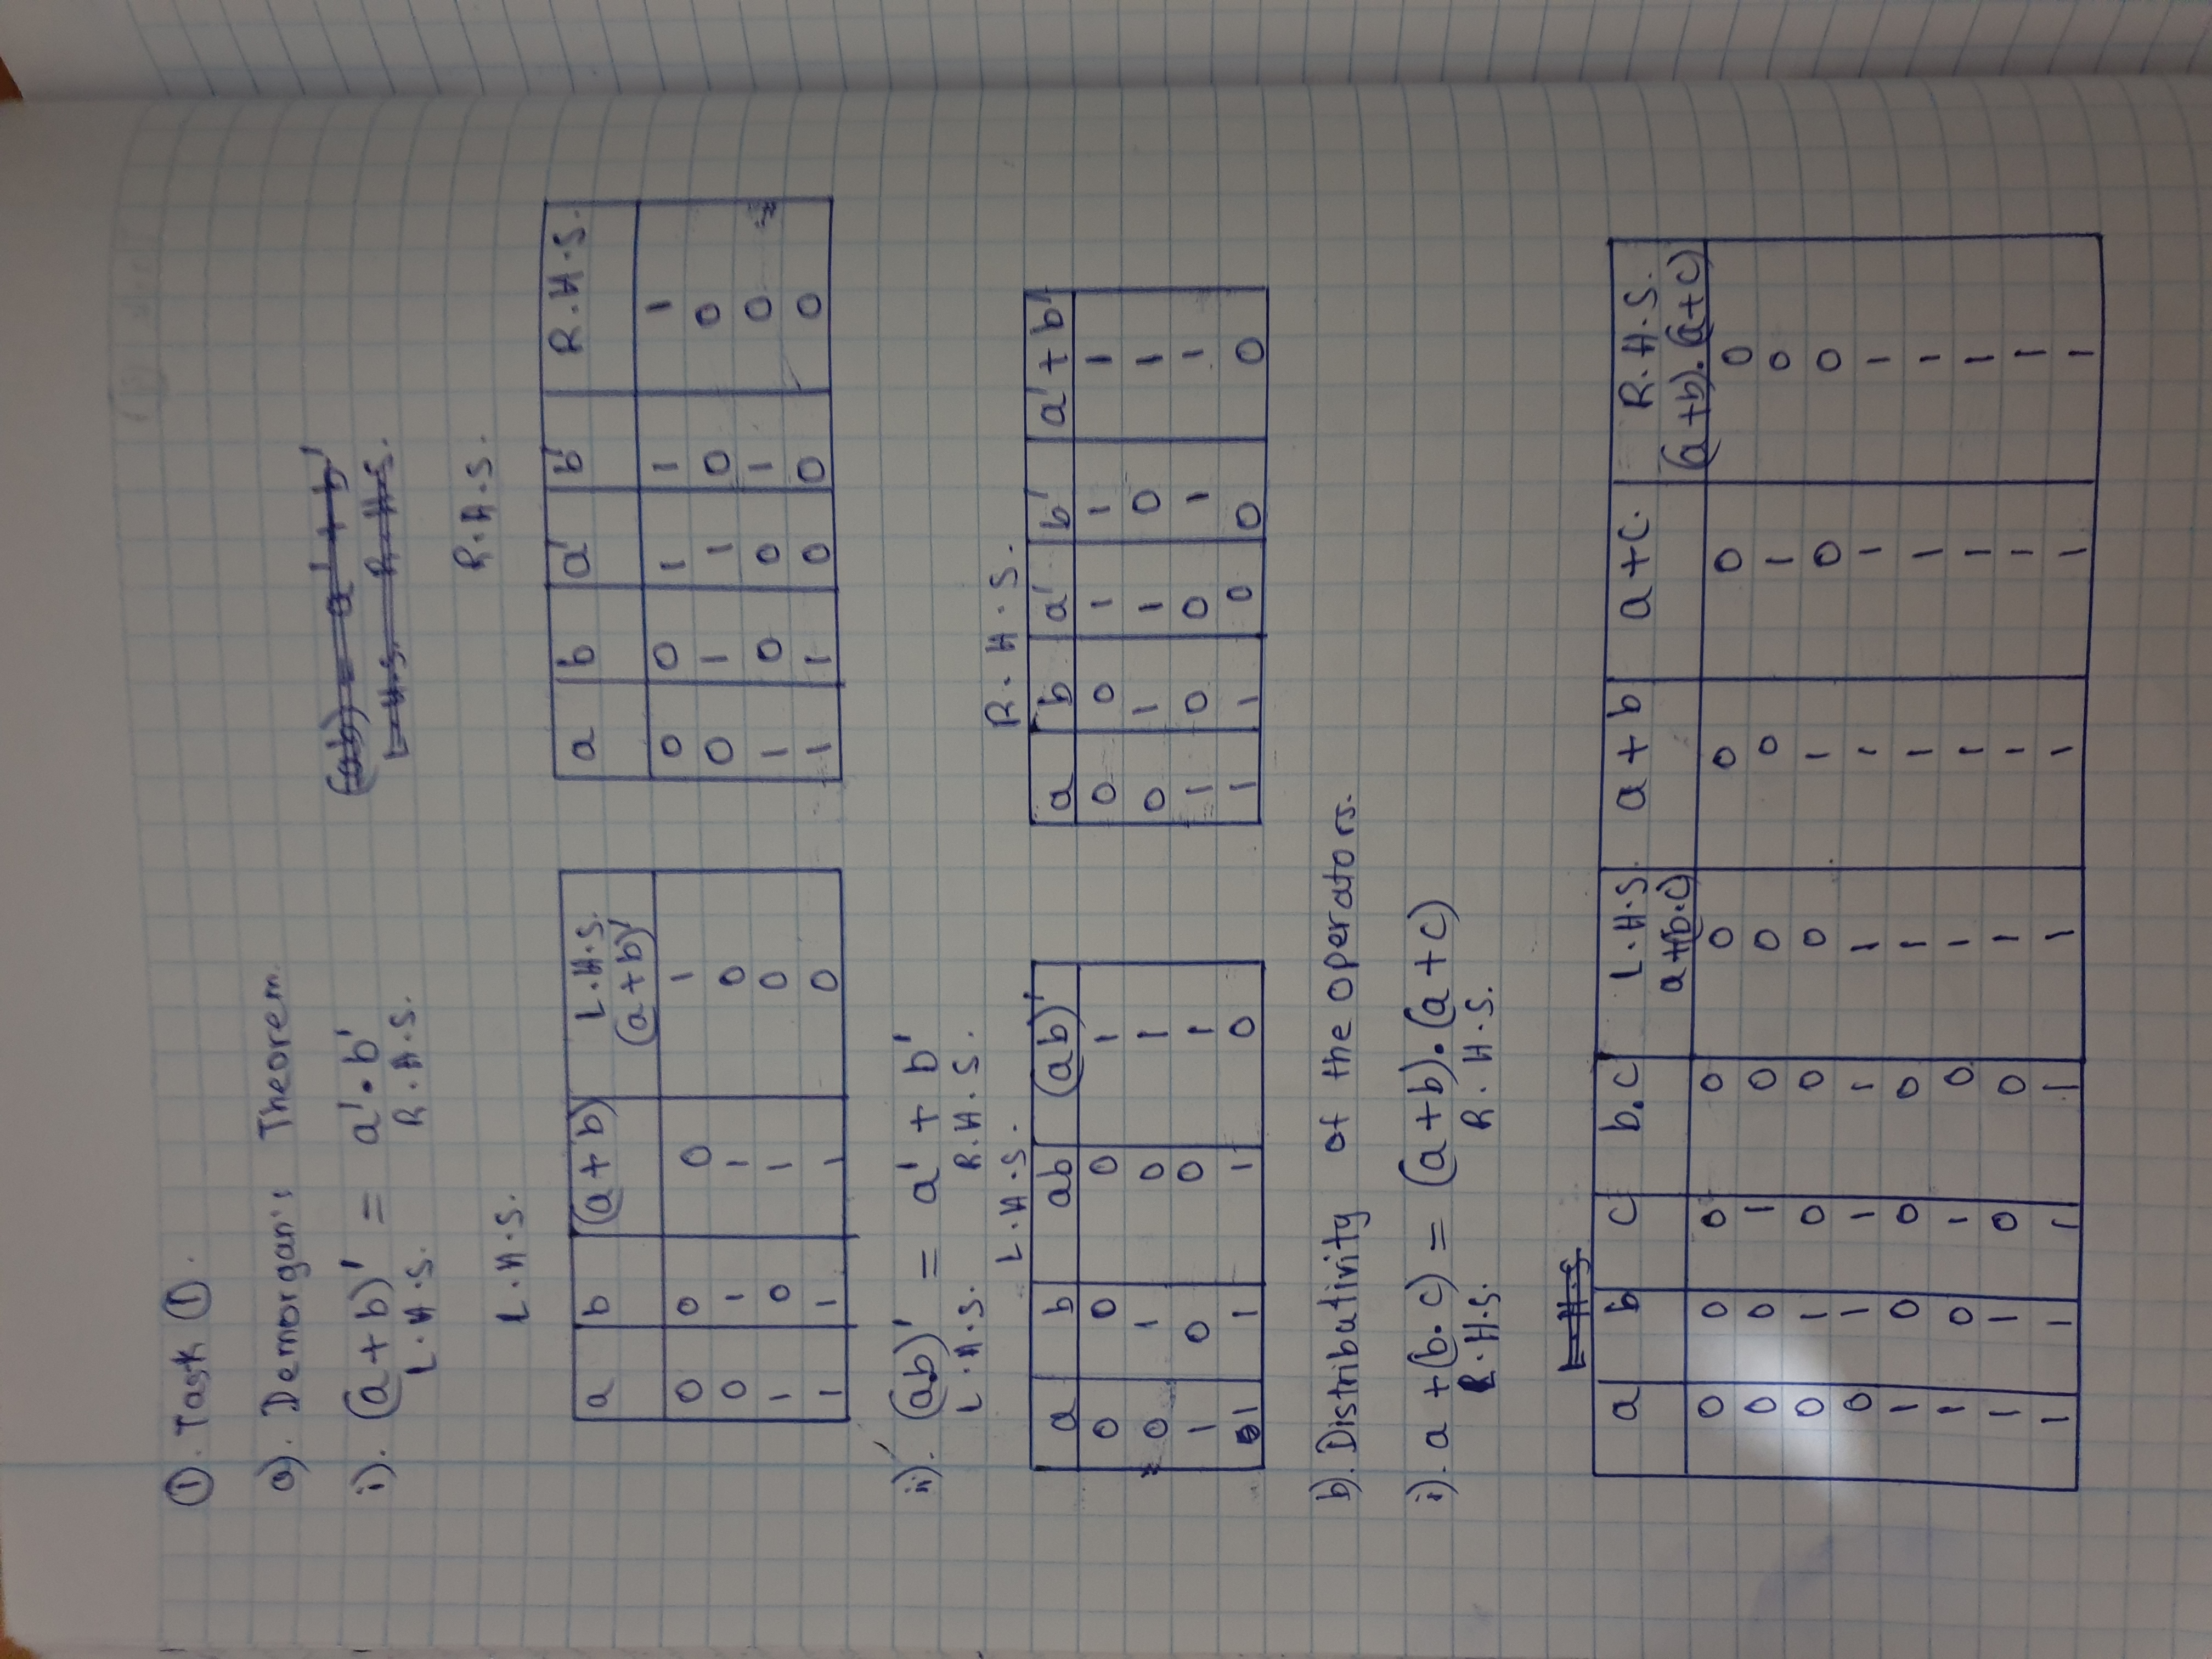 ①. Task ①.
a). Demorgan's Theorem.
i). (a+b)' = a'·b'
L.H.S. R.H.S.
(ab) = a' + b'
L.H.S. R.H.S.
L.H.S.
a b (a+b) L.H.S. (a+b)'
0 0 0 1
0 1 1 0
1 0 1 0
1 1 1 0
R.H.S.
a b a' b' R.H.S.
0 0 1 1 1
0 1 1 0 0
1 0 0 1 0
1 1 0 0 0
ii). (a.b)' = a' + b'
L.H.S. R.H.S.
L.H.S.
a b ab (ab)'
0 0 0 1
0 1 0 1
1 0 0 1
1 1 1 0
R.H.S.
a b a' b' a'+b'
0 0 1 1 1
0 1 1 0 1
1 0 0 1 1
1 1 0 0 0
b). Distributivity of the operators.
i). a +(b.c) = (a+b).(a+c)
L.H.S. R.H.S.
L.H.S
a b c b.c L.H.S. a+(b.c) a+b a+c. R.H.S. (a+b).(a+c)
0 0 0 0 0 0 0 0
0 0 1 0 0 0 1 0
0 1 0 0 0 1 0 0
0 1 1 1 1 1 1 1
1 0 0 0 1 1 1 1
1 0 1 0 1 1 1 1
1 1 0 0 1 1 1 1
1 1 1 1 1 1 1 1